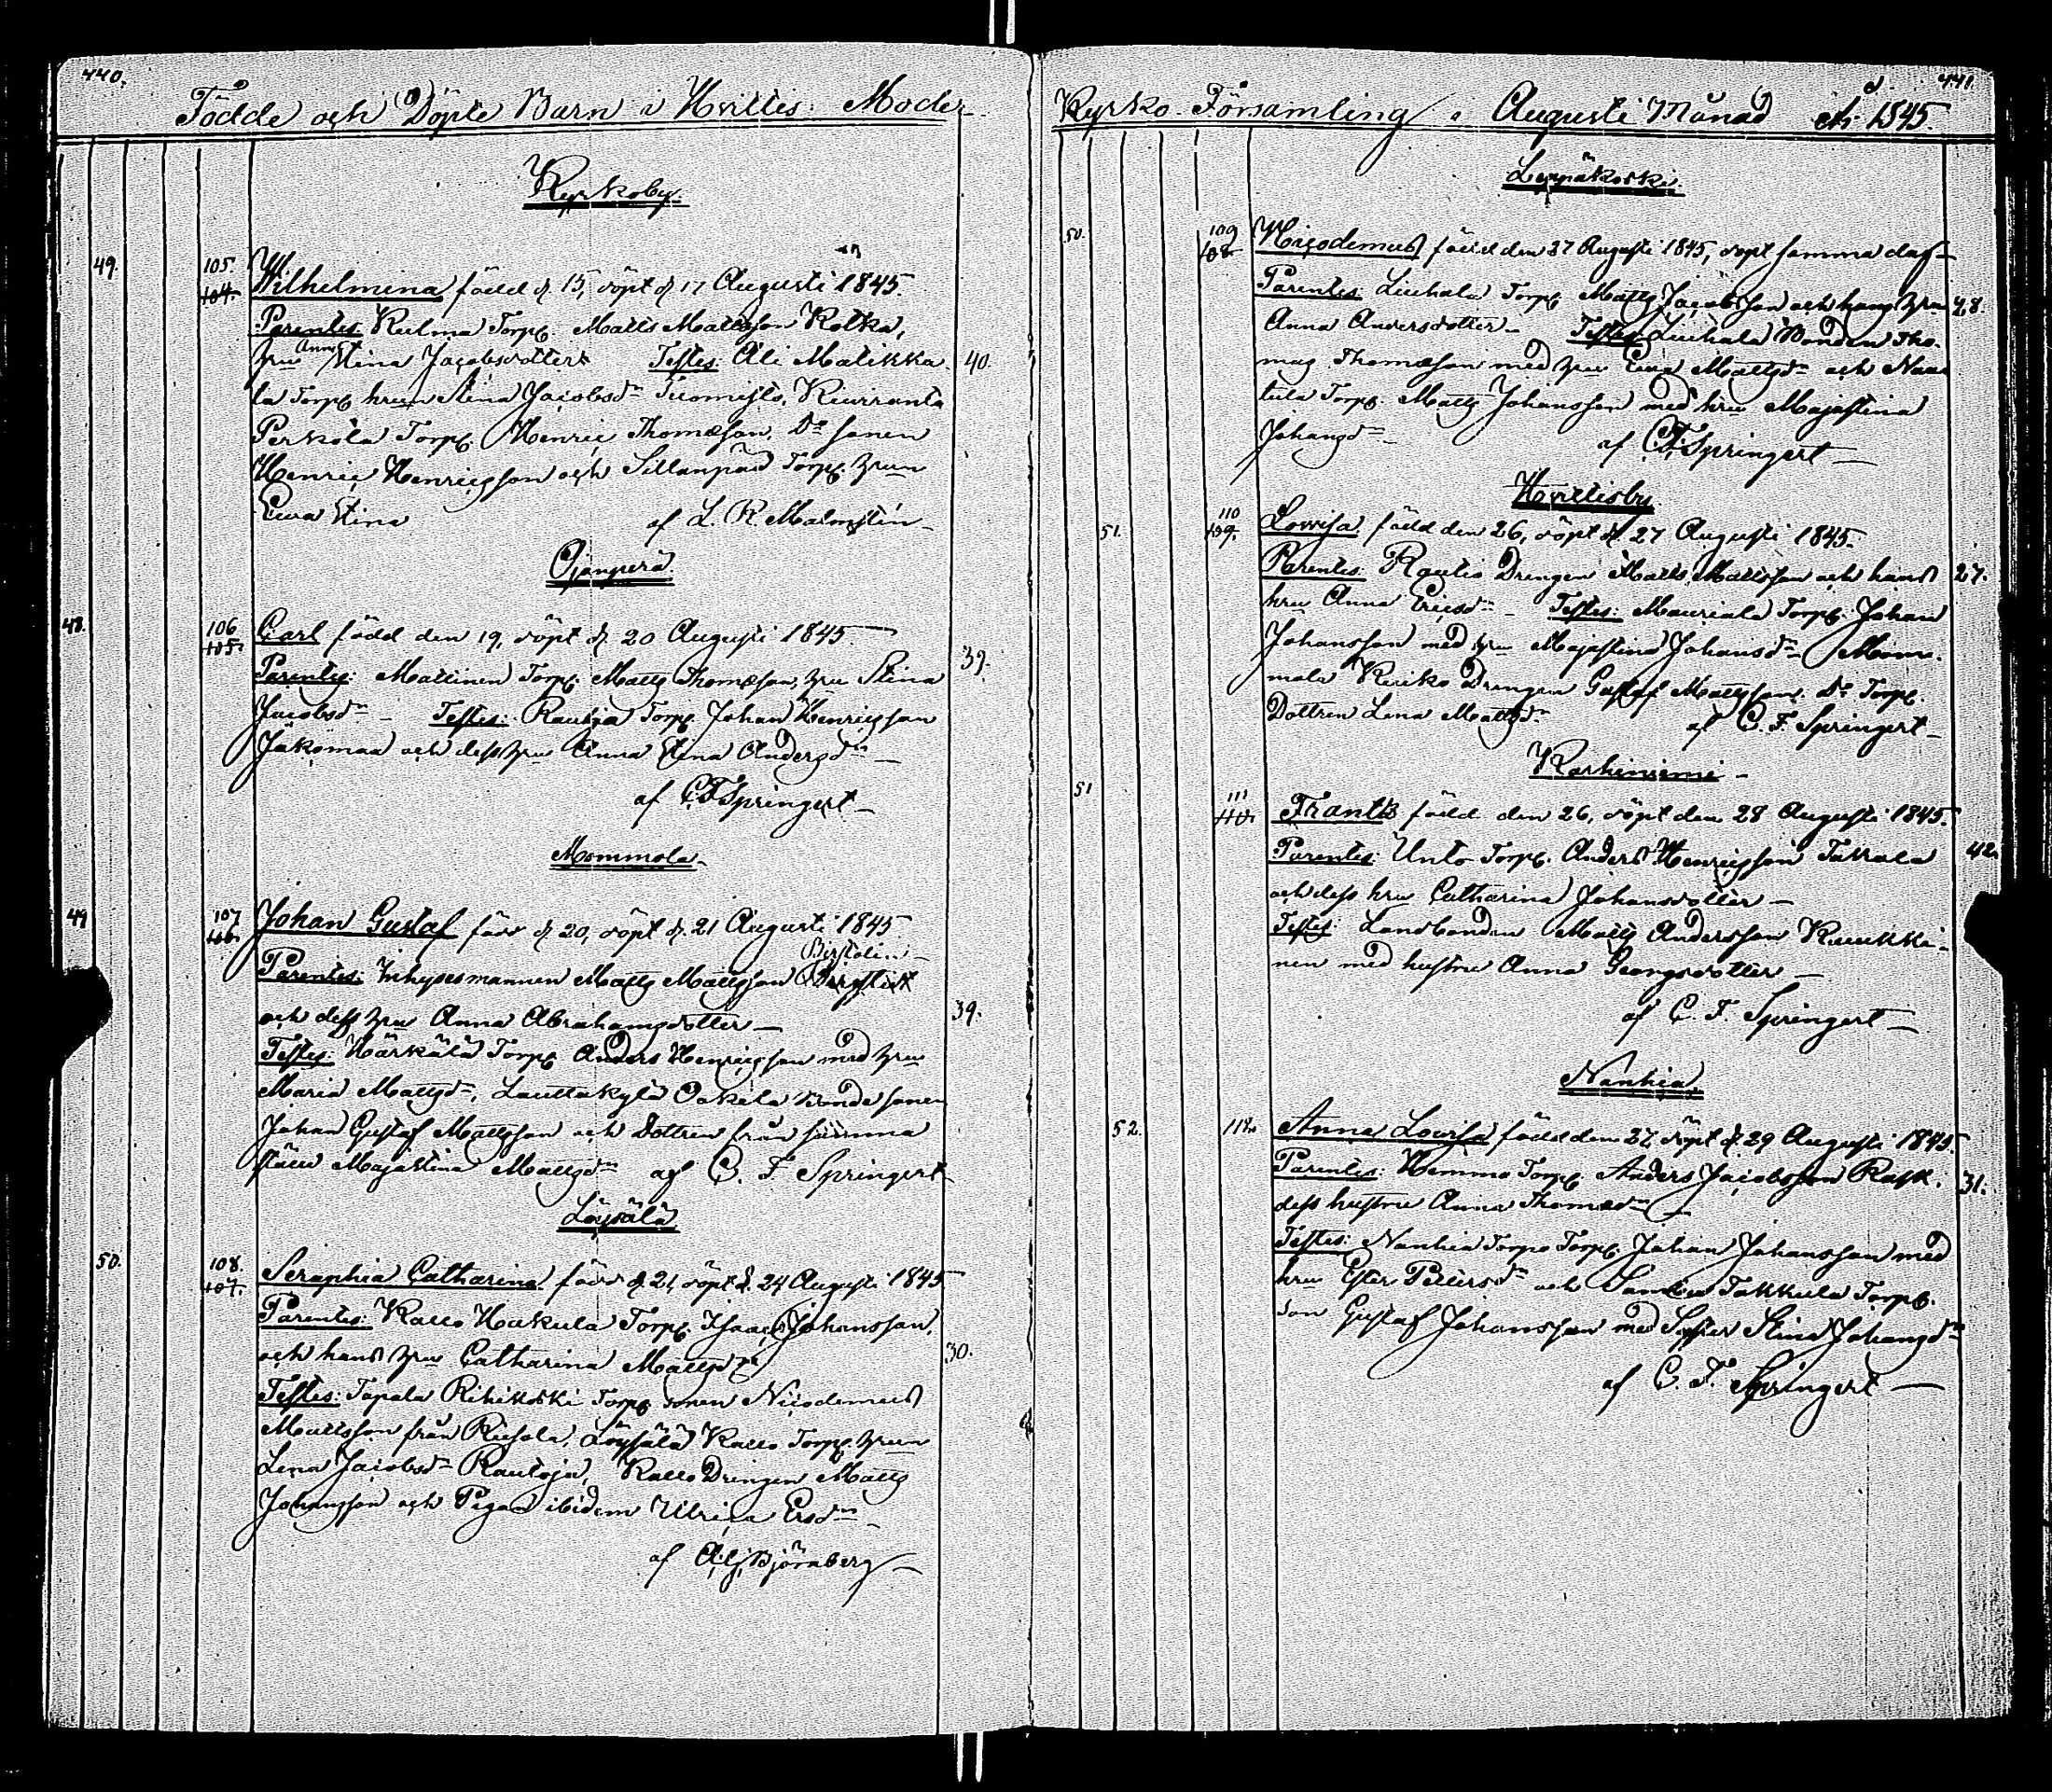 440.
Födde och Döpte Barn i Hvittis Moder
Kyrkoby.
49. 105. 104. Wilhelmina född d. 15, döpt d. 17 Augusti 1845.
Parentes: Torp. Matts Mattsson Kotka,
hru Anna Stina Jacobsdotter Testes: Ali Matikka- 40.
la Torp. hrun Stina Jacobsdr Tuomisto, Kiviranta
Perkola Torp. Henric Thomasson, Do sonen
Henric Henricsson och Sillanpää Torp. hrun
Ewa Stina af L. R. Malmstén
Ojanperä.
48. 106 105. Carl född den 19, döpt d. 20 Augusti 1845
Parentes: Mattinen Torp. Matts Thomasson, hru Stina 39.
Jacobsdr Testes: Rautoja Torp. Johan Henricsson
Jakomaa och dess hru Anna Stina Andersdr
af C. F. Springert
Mommola
49 107 106. Johan Gustaf född d. 20, döpt d. 21 Augusti 1845
Parentes: Inhysesmannen Matts Mattsson
och dess hru Anna Abrahamsdotter 39.
Testes: Härkälä Torp. Anders Henricsson med hru
Maria Mattsdr, Lauttakylä Bondesonen
Johan Gustaf Mattsson och Dottren från samma
ställe Majastina Mattsdr af C. F. Springert
Löysälä
50. 108. 107. Seraphia Catharina född d. 21, döpt d. 24 Augusti 1845
Parentes: Kallo Hakula Torp. Isaac Johansson,
och hans hru Catharina Mattsdr 30.
Testes: Tapala Rihikoski Torp. sonen Nicodemus
Mattsson från Riesola, Löysälä Kallo Torp. hrun
Lena Jacobsdr Rautoja, Kallo Drengen Matts
Johansson och Pigan ibidem Ulrica Ersdr
af A. G. Björnberg
441.
Kyrko Församling i Augusti Månad År 1845.
Leppäkoski.
50. 109 108. Nicodemus född den 27 Augusti 1845, döpt samma dag
Parentes: Liuhala Torp. Matts Jacobsson och hans hru 28.
Anna Andersdotter Testes: Liuhala Bonden Tho-
mas Thomasson med hru Ewa Mattsdr och
tula Torp. Matts Johansson med hru Majastina
Johansdr af C. F. Springert
Hvittisby
51. 110 109. Lovisa född den 26, döpt d. 27 Augusti 1845.
Parentes: Rautio Drengen Matts Mattsson och hans 27.
hru Anna Ericsdr Testes: Mauriala Torp. Johan
Johansson med hru Majastina Johansdr Mom-
mola Drengen Gustaf Mattsson. Do Torp.
Dottren Lena Mattsdr af C. F. Springert
Karhiniemi
51 111 110. Frantz född den 26, döpt den 28 Augusti 1845.
Parentes: Unto Torp. Anders Henricsson 42.
och dess hru Catharina Johansdotter
Testes: Landbonden Matts Andersson Kaukki-
nen med hustru Anna Georgsdotter
af C. F. Springert
Nanhia.
52. 112. Anna Lovisa född den 27, döpt d. 29 Augusti 1845.
Parentes: Hemmo Torp. Anders Jacobsson Rask. 31.
dess hustru Anna Thomasdr
Testes: Nanhia Torpo Torp. Johan Johansson med
hru Ester Pettersdr och Takkula Torp.
son Gustaf Johansson med Syster Stina Johansdr
af C. F. Springert